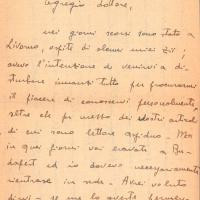 egregio dottore,
nei giorni scorsi sono stato a
Livorno, ospite di alcuni miei zii;
avevo l'intenzione di venirvi a di-
sturbare innanzitutto per procurarmi
il piacere di conoscervi personalmente,
oltre che pr mezzo dei vostri articoli
di cui sono lettore assiduo. Ma
in quei giorni voi eravate a Bu-
dapest ed io dovevo necessariamente
rientrare in sede. Avrei voluto
dirvi - se me lo aveste permesso